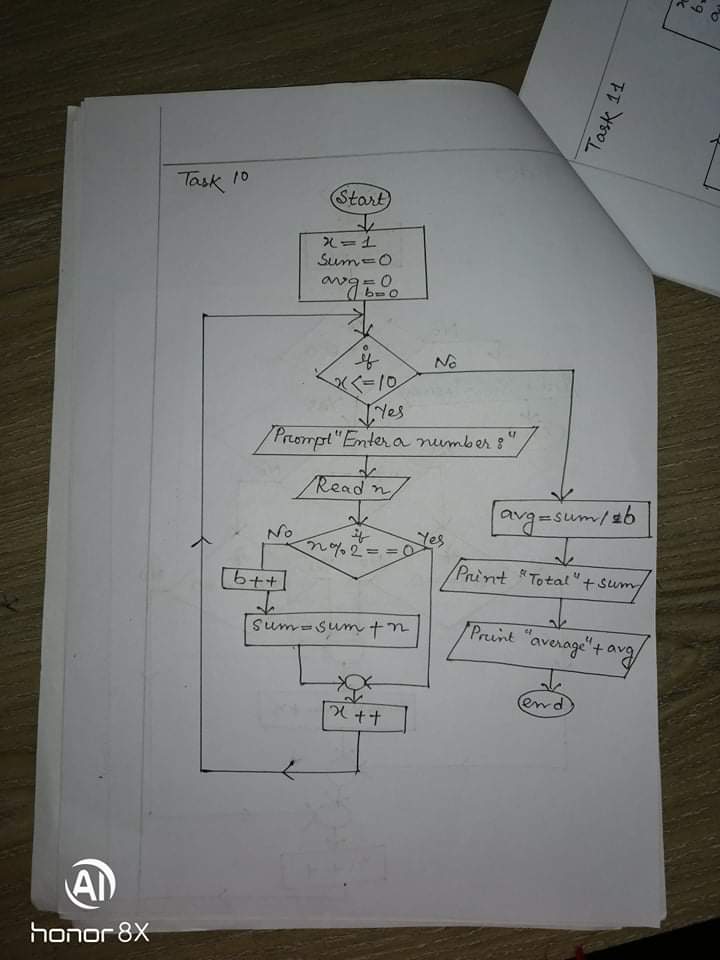 Task 10
Start
x = 1
sum = 0
avg = 0
b = 0
if
x <= 10
No
Yes
Prompt "Enter a number:"
Read n
if
n % 2 == 0
No
Yes
b++
sum = sum + n
x ++
avg = sum / b
Print "Total" + sum
Print "average" + avg
end
Task 11
AI
honor 8X